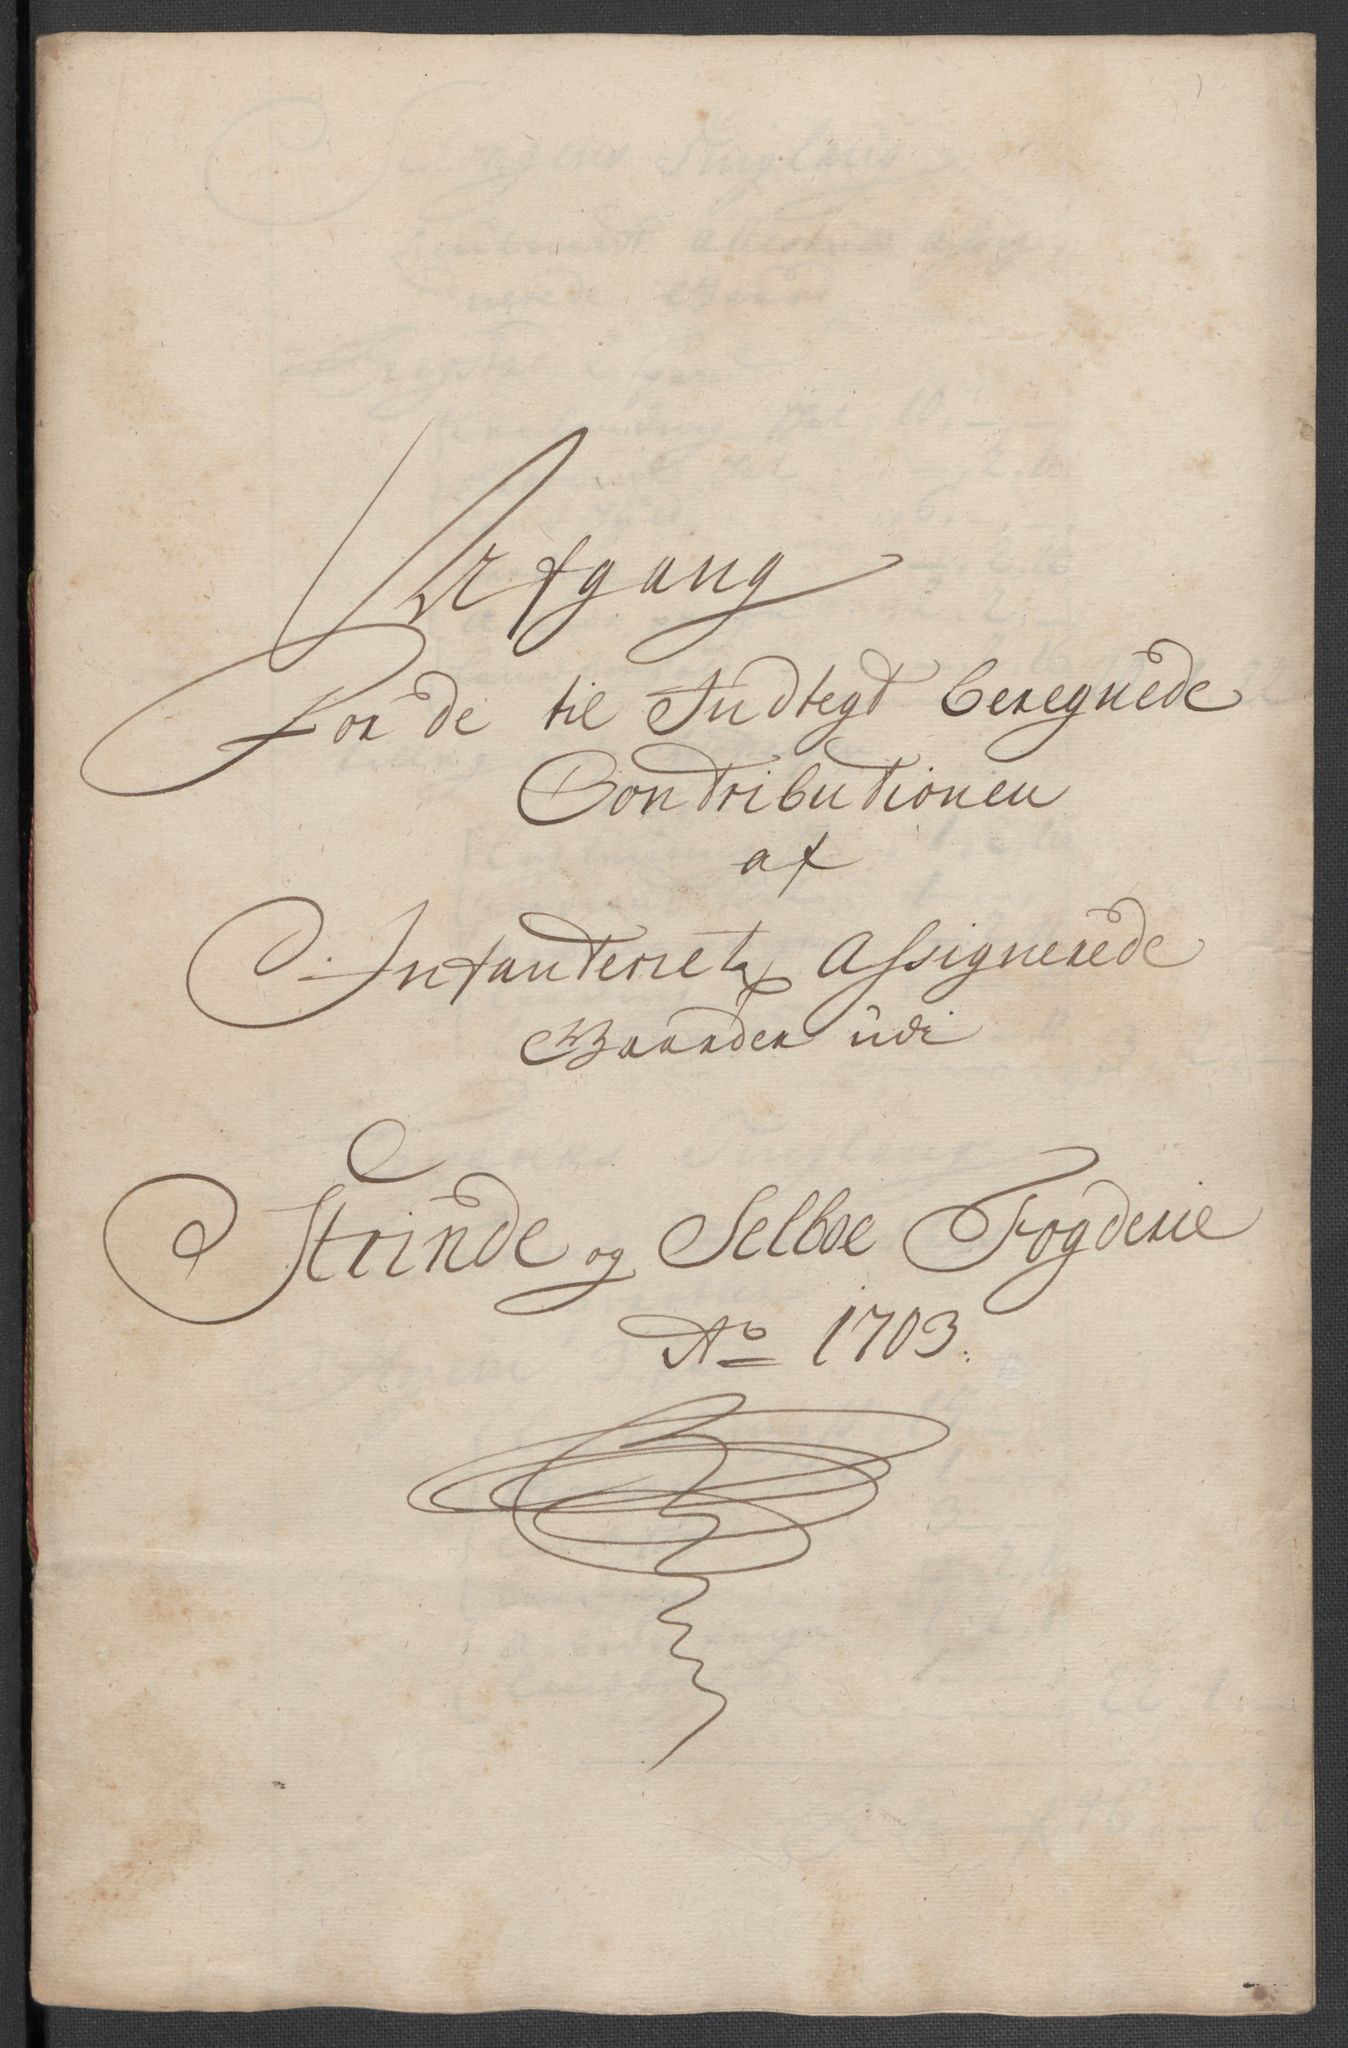 Afgang
For de til Indtegt beregnede
Contributioner
af
Infanteriets Assignerede
Gaarder udi
Strinde og Selboe Fogderie
Ao 1703.